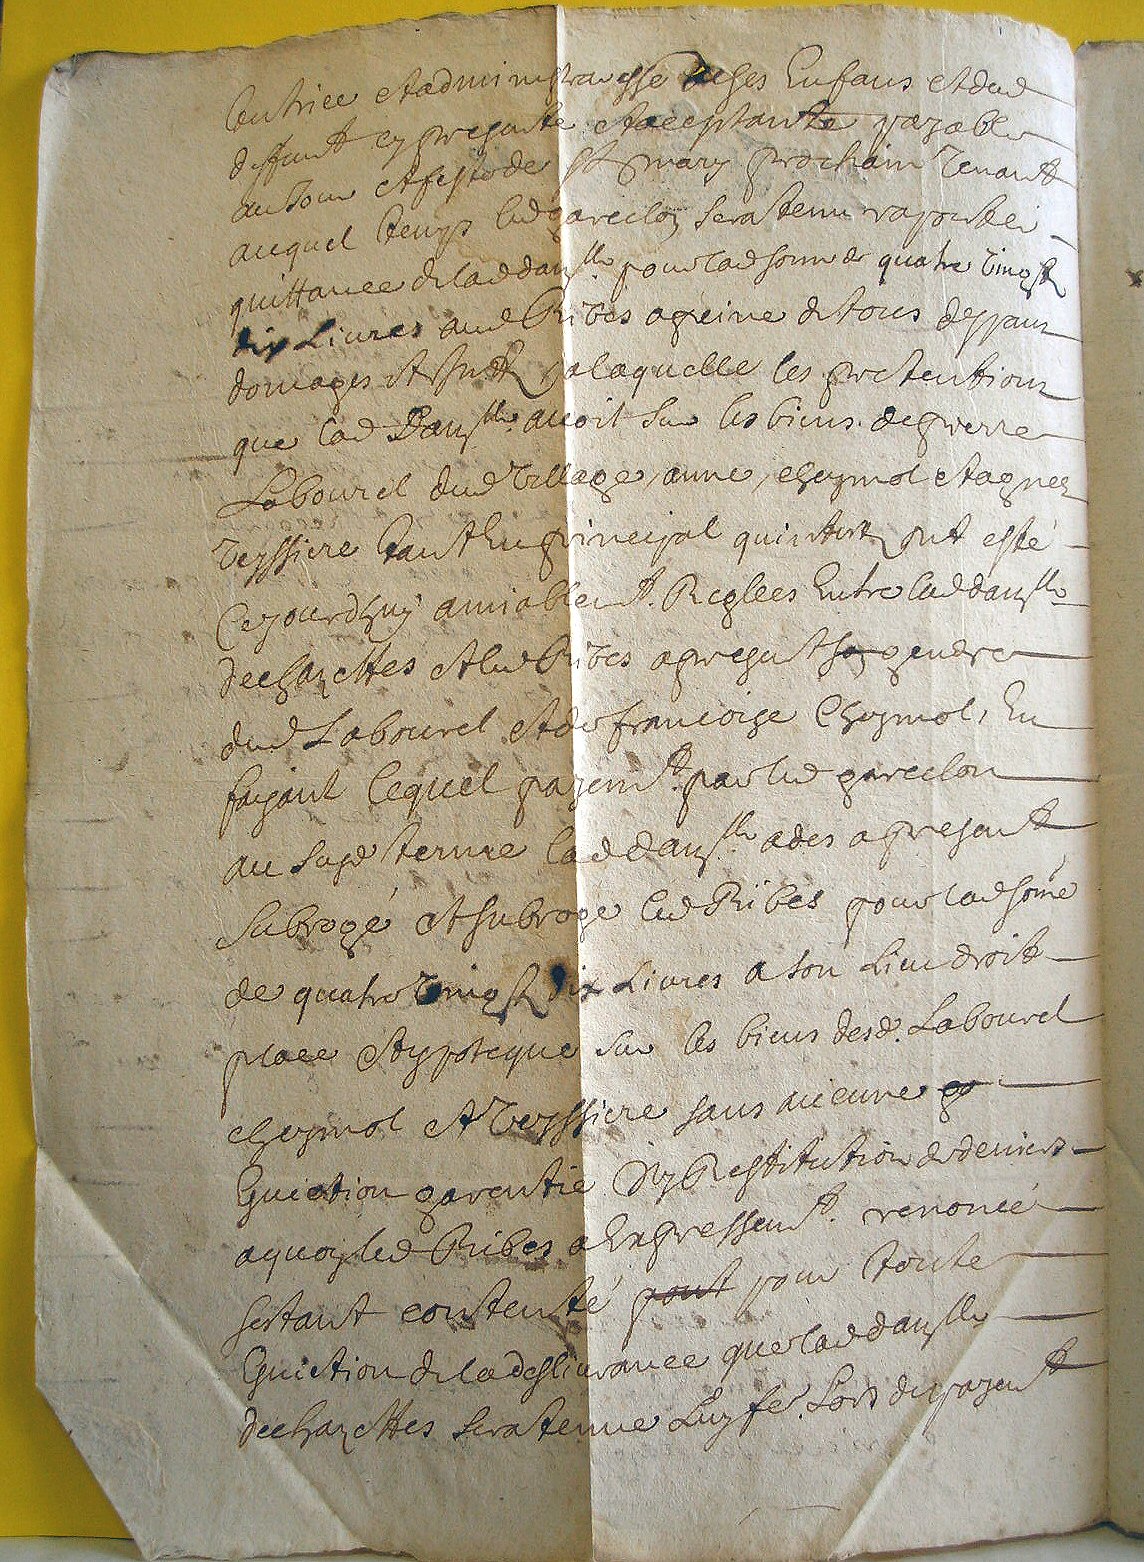 tutrice et administraresse de ses Enfans et dud
deffunt cy presente et acceptante payable
au Jour et feste de st mary prochain venant
auquel temps led garcelon sera tenu raporter
quittance de lad danslle pour lad somme de quatre vingts
dix Livres aud Ribes a peine de tous depans
domages et Intts a laquelle les pretentions
que lad Danslle avoit sur les biens de pierre
Labourel dud village, anne Cheymol et agnes
veyssiere tant En principal quinterts ont esté
Cejourdhuy amiablemt. Reglees Entre lad danslle
dechazettes et led Ribes a present gendre
dud Labourel et de francoise Cheymol, En
faisant lequel payemt. par led garcelon
au susd terme lad danslle a des a present
subrogé et subroge led Ribes pour lad somme
de quatre vingts dix Livres a son Lieu droit
place et ypoteque sur les biens desd. Labourel
cheymol et veyssiere sans aucune
Eviction garentie Ny Restitution de deniers
a quoy led Ribes a Expressemt. renoncé
sestant contenté pour toute
Eviction de la deslivrance que lad danslle
dechazettes sera tenue Luy fe. Lors du payent